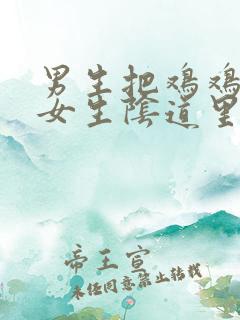 男生把鸡鸡
女生陰道里
帝王宣
未经同意禁止转载